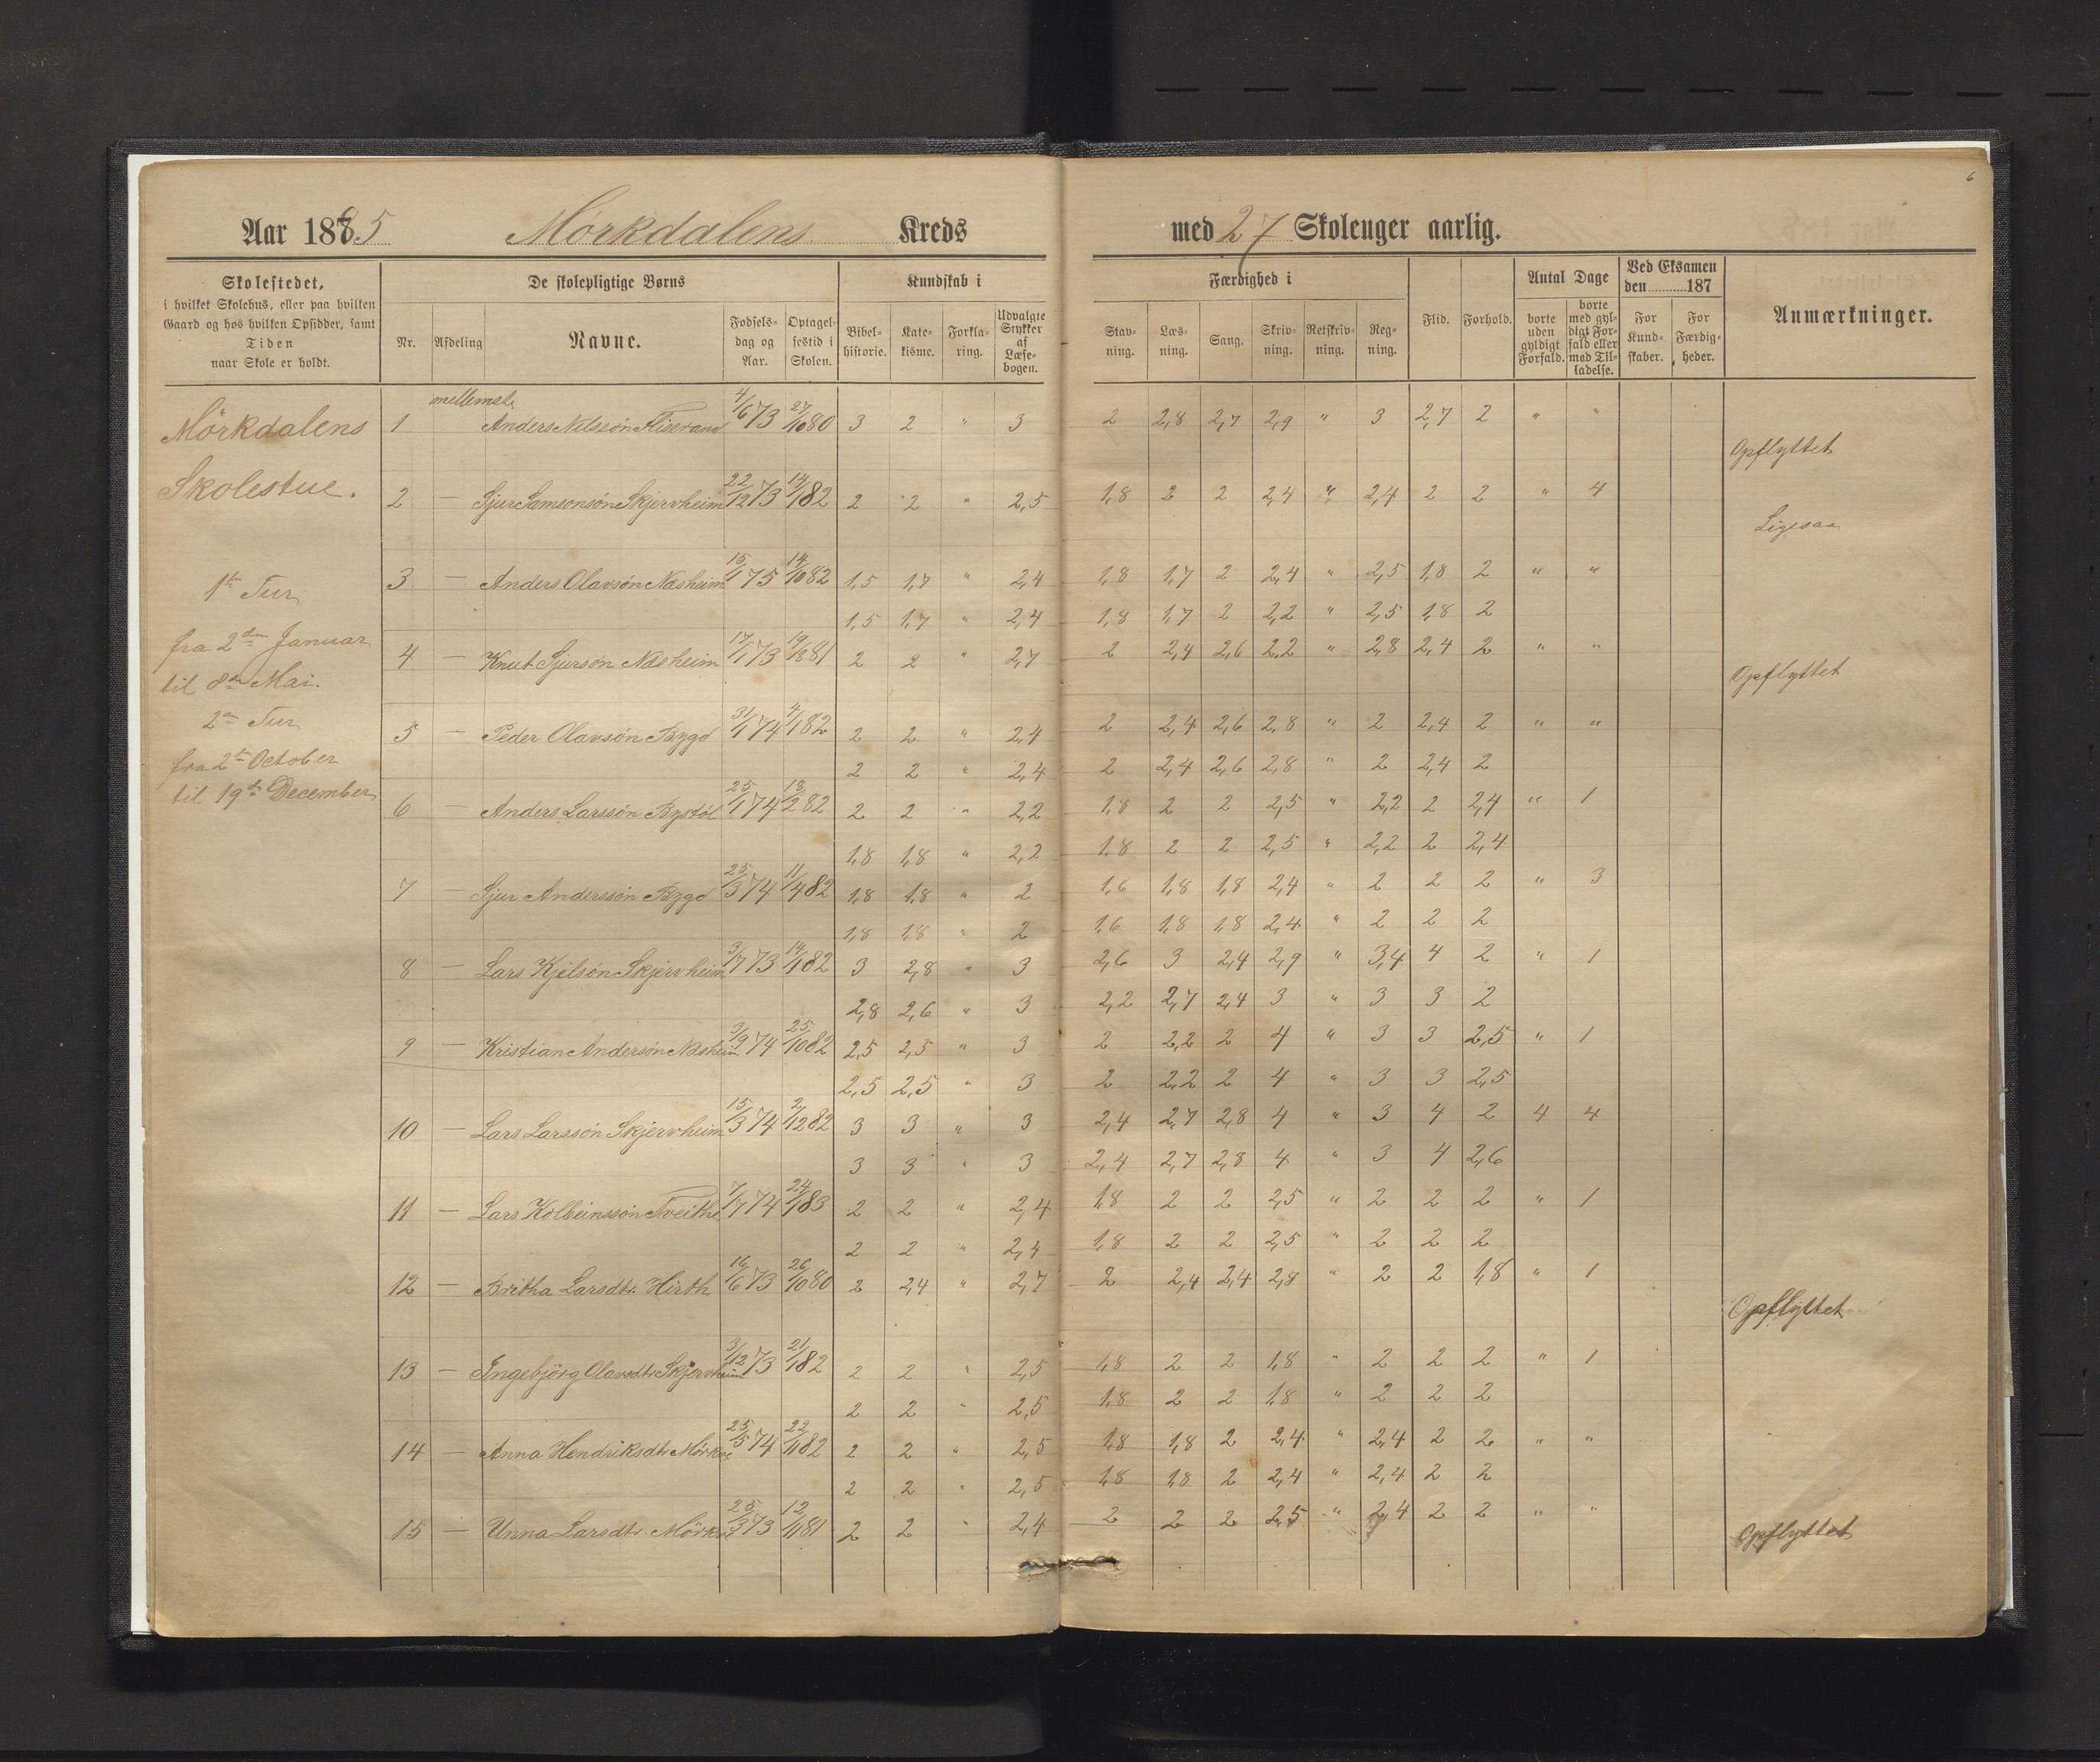 6
Aar 1885 Mörkdalens Kreds med 27 Skoleuger aarlig.
Skolestedet,
i hvilket Skolehus, eller paa hvilken
Gaard og hos hvilken Opsidder, samt
Tiden
naar Skole er holdt.
De skolepligtige Børns
Nr. Afdeling Navne. Fødselsdag og Aar. Optagelsestid i Skolen.
Kundskab i
Bibelhistorie. Katekisme. Forklaring. Udvalgte Stykker af Læsebogen.
Færdighed i
Stavning. Læsning. Sang. Skrivning. Retskrivning. Regning.
Flid. Forhold.
Antal Dage
borte uden gyldigt Forfald. borte med gyldigt Forfald eller med Tilladelse.
Ved Eksamen den 187
For Kundskaber. For Færdigheder.
Anmærkninger.
Mörkdalens
Skolestue.
1ste Tur
fra 2den Januar
til 8de Mai.
2den Tur
fra 2de October
til 19de December
1 mellemste Anders Nilssön Fliserand 4/6 73 27/10 80 3 2 " 3 2 2,8 2,7 2,9 " 3 2,7 2 " "
Opflyttet
2 — Sjur Samsonsön Skjervheim 22/12 73 14/1 82 2 2 " 2,5 1,8 2 2 2,4 " 2,4 2 2 " 4
Ligesaa
3 — Anders Olavsön Næsheim 15/1 75 14/10 82 1,5 1,7 " 2,4 1,8 1,7 2 2,4 " 2,5 1,8 2 " "
1,5 1,7 " 2,4 1,8 1,7 2 2,2 " 2,5 1,8 2
4 — Knut Sjursön Næsheim 17/1 73 81 2 2 " 2,7 2 2,4 2,6 2,2 " 2,8 2,4 2 " "
Opflyttet
5 — Peder Olavsön Bygd 31/1 74 4/1 82 2 2 " 2,4 2 2,4 2,6 2,8 " 2 2,4 2 " "
2 2 " 2,4 2 2,4 2,6 2,8 " 2 2,4 2
6 — Anders Larssön Bystöl 25/1 74 18/2 82 2 2 " 2,2 1,8 2 2 2,5 " 2,2 2 2,4 " 1
1,8 1,8 " 2,2 1,8 2 2 2,5 " 2,2 2 2,4
7 — Sjur Anderssön Bygd 25/3 74 11/4 82 1,8 1,8 " 2 1,6 1,8 1,8 2,4 " 2 2 2 " 3
1,8 1,8 " 2 1,6 1,8 1,8 2,4 " 2 2 2
8 — Lars Kjelsön Skjervheim 3/7 73 14/1 82 3 2,8 " 3 2,6 3 2,4 2,9 " 3,4 4 2 " 1
2,8 2,6 " 3 2,2 2,7 2,4 3 " 3 3 2
9 — Kristian Andersön Næsheim 3/9 74 25/10 82 2,5 2,5 " 3 2 2,2 2 4 " 3 3 2,5 " 1
2,5 2,5 " 3 2 2,2 2 4 " 3 3 2,5
10 — Lars Larssön Skjervheim 15/3 74 2/12 82 3 3 " 3 2,4 2,7 2,8 4 " 3 4 2 4 4
3 3 " 3 2,4 2,7 2,8 4 " 3 4 2,6
11 — Lars Kolbeinssön Tveithe 7/7 74 24/1 83 2 2 " 2,4 1,8 2 2 2,5 " 2 2 2 " 1
2 2 " 2,4 1,8 2 2 2,5 " 2 2 2
12 — Britha Larsdtr. Hirth 16/6 73 26/10 80 2 2,4 " 2,7 2 2,4 2,4 2,8 " 2 2 1,8 " 1
Opflyttet
13 — Ingebjörg Olavsdtr Skjervheim 3/12 73 21/1 82 2 2 " 2,5 1,8 2 2 1,8 " 2 2 2 " 1
2 2 " 2,5 1,8 2 2 1,8 " 2 2 2
14 — Anna Hendriksdtr Mörkve 25/5 74 22/11 82 2 2 " 2,5 1,8 1,8 2 2,4 " 2,4 2 2 " "
2 2 " 2,5 1,8 1,8 2 2,4 " 2,4 2 2
15 — Unna Larsdtr. Mörkve 25/3 73 12/11 81 2 2 " 2,4 2 2 2 2,5 " 2,4 2 2 " "
Opflyttet